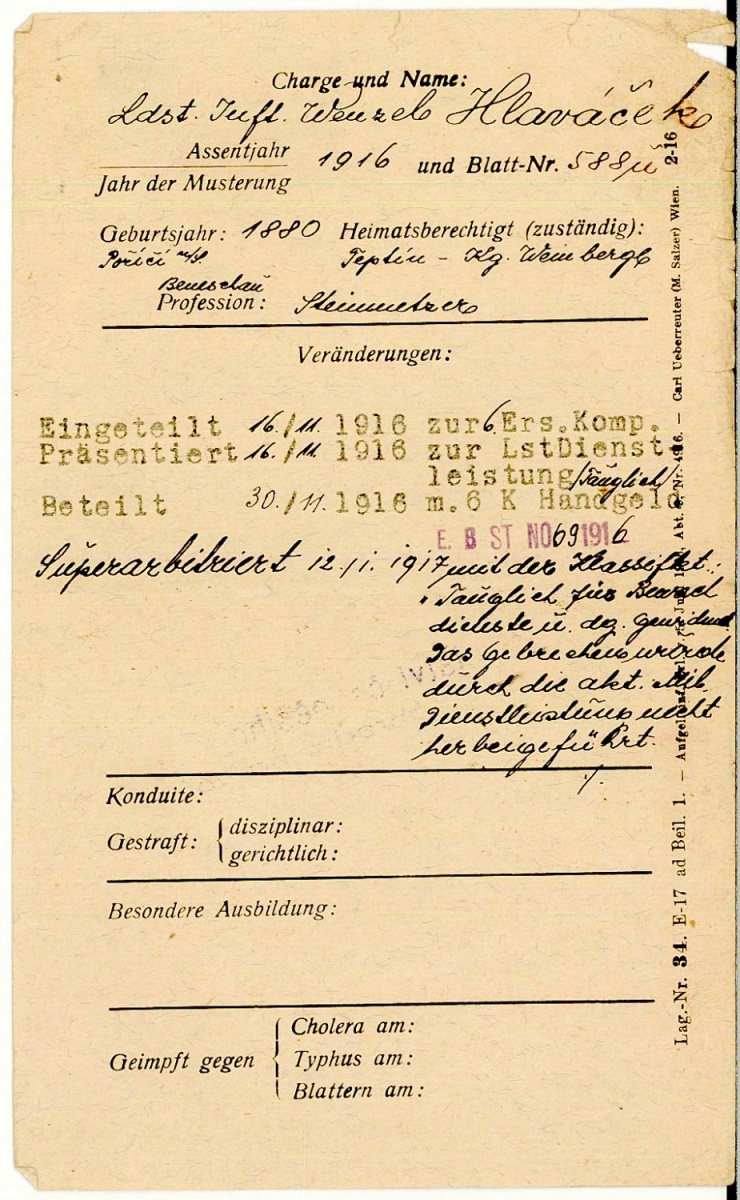 Charge und Name:
Ldst. Inft. Wenzel Hlaváček
Assentjahr
Jahr der Musterung
1916 und Blatt-Nr. 588
Geburtsjahr: 1880 Heimatsberechtigt (zuständig):
Poříčí a/S. Teptín - Kg. Weinberge
Beneschau
Profession: Steinmetzer
Veränderungen:
Eingeteilt 16./11. 1916 zur 6. Ers.Komp.
Präsentiert 16./11. 1916 zur LstDienst-
leistung /Tauglich/
Beteilt 30./11. 1916 m. 6 K Handgeld
E. B ST NO 69 1916
Superarbitriert 12./1. 1917 mit der Klassifkt.:
"Tauglich für Bewach
dienste u.
Das Gebrechen wurde
durch die akt. Mil.
Dienstleistung nicht
herbeigeführt.
./.
Konduite:
Gestraft: disziplinar:
gerichtlich:
Besondere Ausbildung:
Geimpft gegen
Cholera am:
Typhus am:
Blattern am:
Lag.-Nr. 34. E-17 ad Beil. 1. — Carl Ueberreuter (M. Salzer) Wien. 2-16